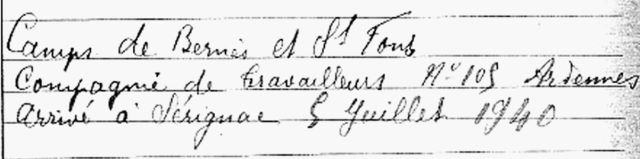 Camps de Bernis et St Fons
Compagnie de travailleurs No 105 Ardennes
Arrivé à Sérignac 5 Juillet 1940